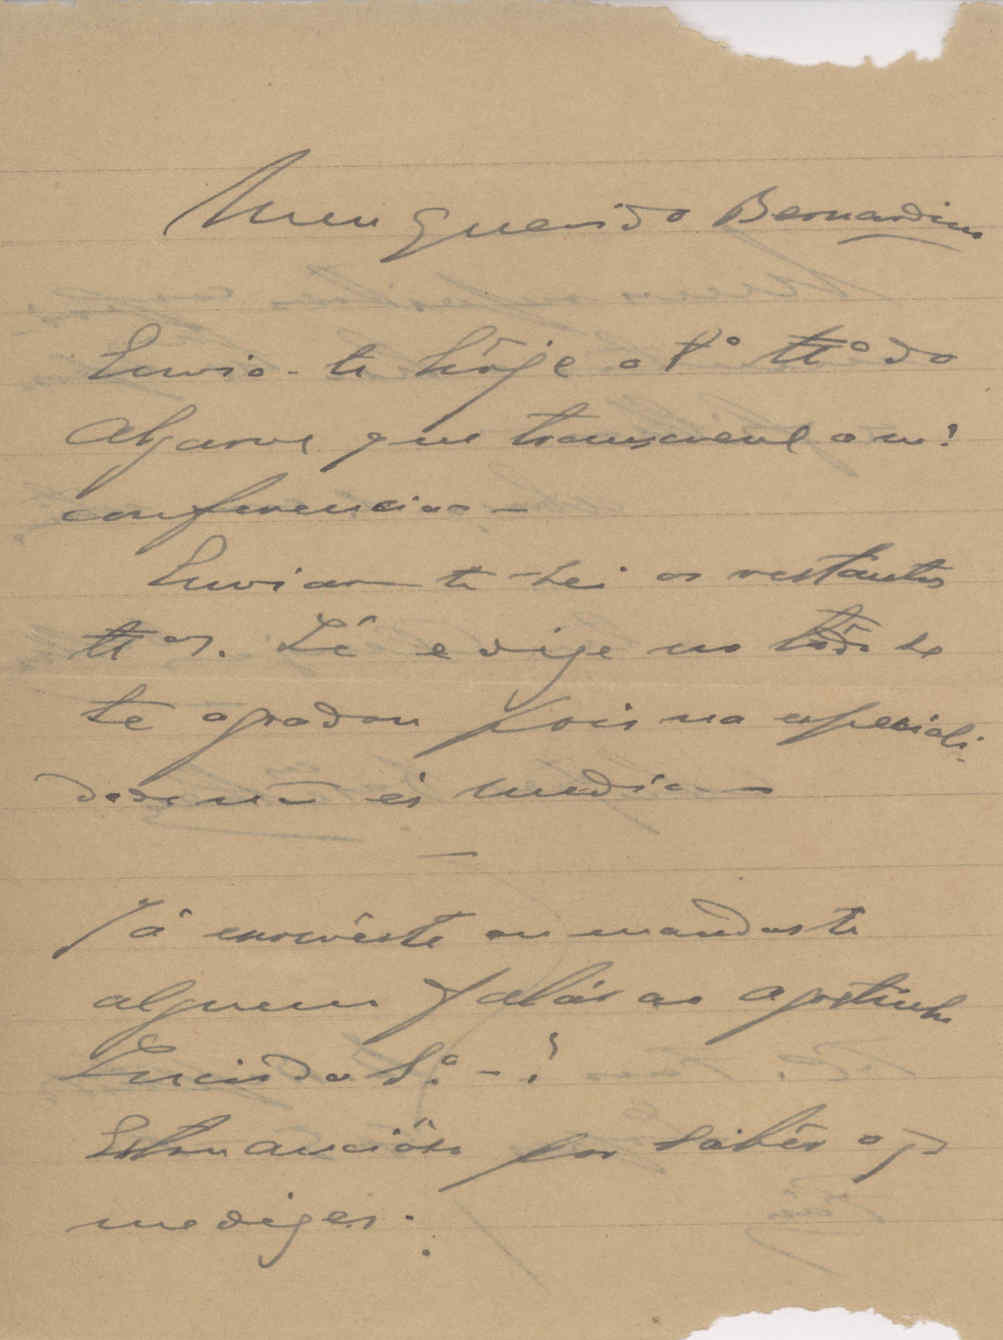 Meu querido Bernardino
Envio-te hôje o 1º ttº do
Algarve que transcreve a m.ª
conferencia -
Enviar te-hei os restantes
ttos. Lê e dize me se
te agradou pois na especiali-
dade não és
Já escrevêste ou mandaste
alguem falár ao Agostinho
Lucio da Sª - ?
Estou anciôso por sabêr o q
me dizes.